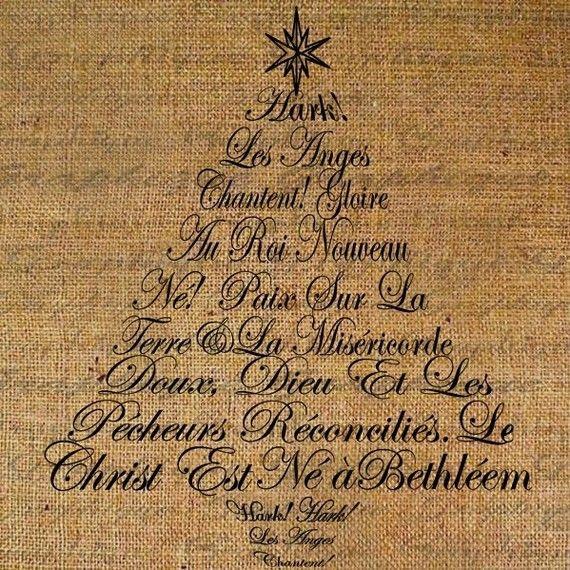 Hark!
Les Anges
Chantent! Gloire
Au Roi Nouveau
Né! Paix Sur La
Terre & La Miséricorde
Doux, Dieu Et Les
Pécheurs Réconciliés. Le
Christ Est Né à Bethléem
Hark! Hark!
Les Anges
Chantent!